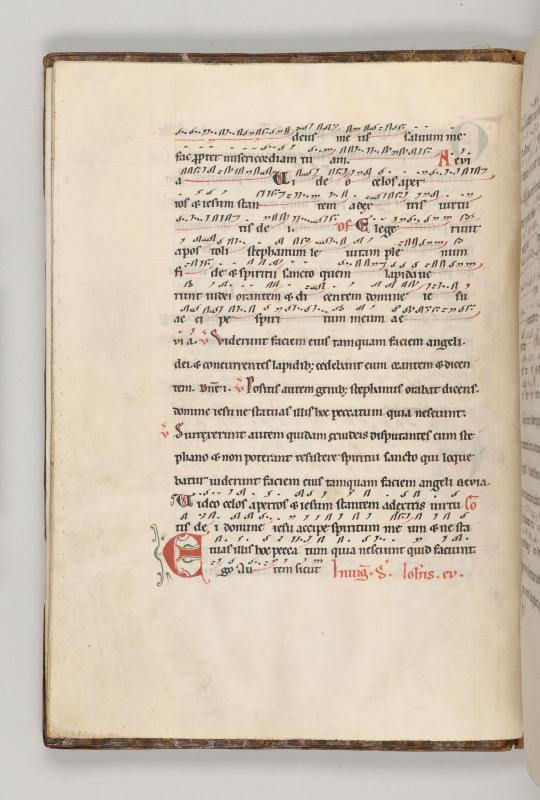 deus me us salvum me
fac ppter misericordiam tu am. Aevi
a Vi de o celos aper
tos & iesum stan tem adex tris uirtu
tis de i. of E lege runt
apos toli stephanum le uitam ple num
fi de & spiritu sancto quem lapidaue
runt iudei orantem & di centem domine ie su
ae ci pe spiri tum meum ae
via. v Viderunt faciem eius tamquam faciem angeli
dei & concurrentes lapidib; cedebant eum orantem & dicen
tem. Dne i. v Positis autem genib; stephanus orabat dicens.
domine iesu ne statuas illis hoc peccatum quia nesciunt.
v Surrexerunt autem quidam ex iudeis disputantes cum ste
phano & non poterant resistere spiritui sancto qui loque
batur uiderunt faciem eius tamquam faciem angeli aevia.
Video celos apertos & iesum stantem adextris uirtu Co
tis de i domine iesu accipe spiritum me um & ne sta
tuas illis hoc pecca tum quia nesciunt quid faciunt.
Ego Au tem sicut In uig. S. Iohis. ev.